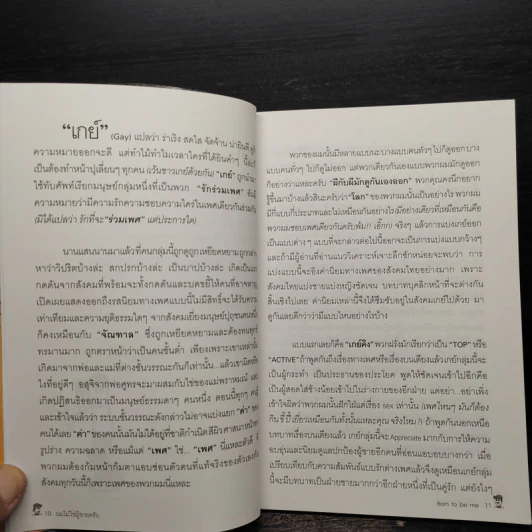 "เกย์" (Gay) แปลว่า ร่าเริง สดใส จัดจ้าน น่ายินดี ดู
ความหมายออกจะดี แต่ทำไม้ทำไมเวลาใครที่ได้ยินคำๆ นี้
เป็นต้องทำหน้าปุเลี่ยนๆ ทุกคน (เว้นชาวเกย์ด้วยกัน) "เกย์" ถูกนำมา
ใช้ทับศัพท์เรียกมนุษย์กลุ่มหนึ่งที่เป็นพวก "รักร่วมเพศ"
ความหมายว่ามีความรักความชอบความใคร่ในเพศเดียวกันร่วมกัน
(มิได้แปลว่า รักที่จะ"ร่วมเพศ" แต่ประการใด)
นานแสนนานมาแล้วที่คนกลุ่มนี้ถูกดูถูกเหยียดหยามถูกกล่าว
หาว่าวิปริตบ้างล่ะ สกปรกบ้างล่ะ เป็นบาปบ้างล่ะ เกิดเป็น
กดดันจากสังคมที่พร้อมจะทั้งกดดันและบดขยี้ให้คนที่อาจหาญ
เปิดเผยแสดงออกถึงรสนิยมทางเพศแบบนี้ไม่มีสิทธิ์จะได้รับความ
เท่าเทียมและความยุติธรรมใดๆ จากสังคมเยี่ยงมนุษย์ปุถุชนคนอื่น
ก็คงเหมือนกับ "จัณฑาล" ซึ่งถูกเหยียดหยามและต้องทนทุกข์
ทรมานมาก ถูกตราหน้าว่าเป็นคนชั้นต่ำ เพียงเพราะเขาเหล่านั้น
เกิดมาจากพ่อและแม่ที่ต่างชั้นวรรณะกันก็เท่านั้น...แล้วเขามีความผิด
ไหมที่อยู่ดีๆ อสุจิจากพ่อศูทรจะมาผสมกับไข่ของแม่พราหมณ์ และ
เกิดปฏิสนธิออกมาเป็นมนุษย์ธรรมดาๆ คนหนึ่ง ตอนนี้ทุกๆ คนรู้
และเข้าใจแล้วว่า ระบบชั้นวรรณะดังกล่าวไม่อาจแบ่งแยก "ค่า" ของ
คนได้เลย "ค่า" ของคนนั้นมันไม่ได้อยู่ที่ชาติกำเนิดสีผิวศาสนาหน้าตา
รูปร่าง ความฉลาด หรือแม้แต่ "เพศ" ใช่... "เพศ" นี่แหละตัวดี ที่
พวกผมต้องก้มหน้าก้มตาแอบซ่อนตัวตนที่แท้จริงของตัวเองกับ
สังคมทุกวันนี้ก็เพราะเพศของพวกผมนี่แหละ
10 ผมไม่ใช่ผู้ชายครับ
พวกของผมนั้นมีหลายแบบนะ บางแบบคนทั่วๆ ไปก็ดูออก บางแบบ
คนทั่วๆ ไปดูไม่ออก แต่พวกเดียวกันเองแบบพวกผมมักดูออก
ก็อย่างว่าแหละครับ "ผีกับผีมักดูกันเองออก" พวกคุณคงนึกอยาก
รู้ขึ้นมาบ้างแล้วสินะครับว่า "โลก" ของพวกผมนั้นเป็นอย่างไร พวกผม
มีกี่แบบกี่ประเภทและไม่เหมือนกันอย่างไร(มีอย่างเดียวที่เหมือนกันคือ
พวกผมชอบเพศเดียวกันครับทั่น!! เอิ๊กๆ) จริงๆ แล้วการแบ่งเกย์ออก
เป็นแบบต่างๆ แบบที่จะกล่าวต่อไปนี้ออกจะเป็นการแบ่งแบบกว้างๆ
และถ้ามีผู้อ่านที่อ่านแนววิเคราะห์เจาะลึกสักหน่อยจะพบว่า การ
แบ่งแบบนี้จะอิงค่านิยมทางเพศของสังคมไทยอย่างมาก เพราะ
สังคมไทยแบ่งชายแบ่งหญิงชัดเจน บทบาทบุคลิกหน้าที่จะต่างกัน
สิ้นเชิงไปเลย ค่านิยมเหล่านี้จึงได้ซึมซับอยู่ในสังคมเกย์ไปด้วย มา
ดูกันเลยดีกว่าว่ามีแบบไหนอย่างไรบ้าง
แบบแรกเลยก็คือ "เกย์คิง" พวกฝรั่งมักเรียกว่าเป็น "TOP" หรือ
"ACTIVE" ถ้าพูดกันถึงเรื่องทางเพศหรือเรื่องบนเตียงแล้วเกย์กลุ่มนี้จะ
เป็นผู้กระทำ เป็นประธานของประโยค พูดให้ชัดเจนเข้าไปอีกก็คือ
เป็นผู้สอดใส่ช้างน้อยเข้าไปในร่างกายของอีกฝ่าย แต่อย่า...อย่าเพิ่ง
เข้าใจผิดว่าพวกผมนั้นฝักใฝ่แต่เรื่อง sex เท่านั้น (เพศไหนๆ มันก็ต้อง
กิน ขี้ ปี้ เยี่ยวเหมือนกันทั้งนั้นแหละคุณ จริงไหม ?) ถ้าพูดกันนอกเหนือ
บทบาทเรื่องบนเตียงแล้ว เกย์กลุ่มนี้จะ Appreciate มากกับการให้ความ
อบอุ่นและนิยมดูแลปกป้องผู้ชายอีกคนที่อ่อนแอบอบบางกว่า เมื่อ
เปรียบเทียบกับความสัมพันธ์แบบรักต่างเพศแล้วจึงดูเหมือนเกย์กลุ่ม
นี้จะมีบทบาทเป็นฝ่ายชายมากกว่าอีกฝ่ายหนึ่งที่เป็นคู่รัก แต่ยังไงๆ
Born to be me 11